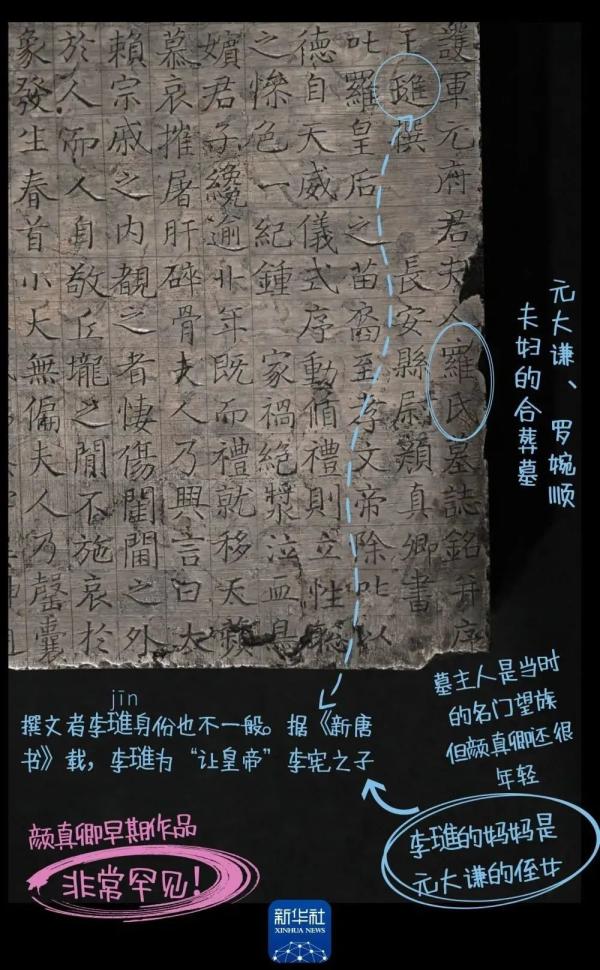 護軍元府君夫人羅氏墓誌銘并序
王璡撰 長安縣尉顏真卿書
叱羅皇后之苗裔至孝文帝除叱以
德自天威儀式序動循禮則立性聰
之慘色一紀鍾 家禍絕漿泣血鳥
嬪君子纔逾廿年既而禮就移天
慕哀摧屠肝碎骨夫人乃興言曰太
賴宗戚之內覩之者悽傷閨閫之外
於人而人自敬丘壠之間不施哀於
象發生春首小大無偏夫人乃罄囊
元大谦、罗婉顺
夫妇的合葬墓
jīn
撰文者李琎身份也不一般。据《新唐
书》载，李琎为“让皇帝”李宪之子
墓主人是当时
的名门望族
但颜真卿还很
年轻
李琎的妈妈是
元大谦的侄女
颜真卿早期作品
非常罕见！
新华社
XINHUA NEWS